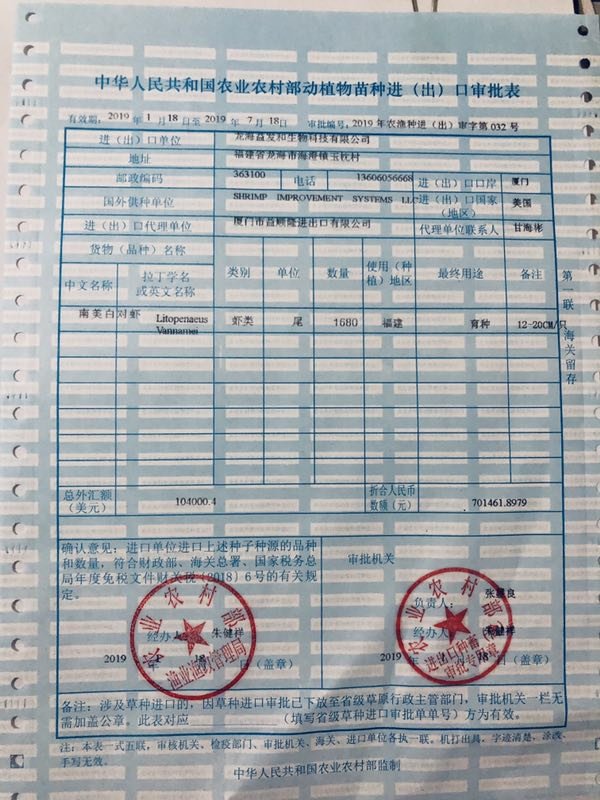 中华人民共和国农业农村部动植物苗种进（出）口审批表
有效期：2019 年 1 月 18 日至 2019 年 7 月 18 日 审批编号：2019 年农渔种进（出）审字第 032 号
进（出）口单位 龙海益发和生物科技有限公司
地址 福建省龙海市海澄镇玉枕村
邮政编码 363100 电话 13606056668 进（出）口口岸 厦门
国外供种单位 SHRIMP IMPROVEMENT SYSTEMS LLC 进（出）口国家（地区） 美国
进（出）口代理单位 厦门市益顺隆进出口有限公司 代理单位联系人 甘海彬
货物（品种）名称 类别 单位 数量 使用（种植）地区 最终用途 备注
中文名称 拉丁学名或英文名称
南美白对虾 Litopenaeus Vannamei 虾类 尾 1680 福建 育种 12-20CM/只
第一联 海关留存
总外汇额（美元） 104000.4 折合人民币数额（元） 701461.8979
确认意见：进口单位进口上述种子种源的品种
和数量，符合财政部、海关总署、国家税务总
局年度免税文件财关税（2018）6号的有关规
定。
经办人： 朱健祥
2019 年 1 月 18 日（盖章）
农业农村部
渔业渔政管理局
审批机关
负责人：
经办人：朱健祥
18 日（盖章）
农业农村部
进出口种苗
审批专用章
备注：涉及草种进口的，因草种进口审批已下放至省级草原行政主管部门，审批机关一栏无
需加盖公章。此表对应（填写省级草种进口审批单单号）方为有效。
注：本表一式五联，审核机关、检疫部门、审批机关、海关、进口单位各执一联。机打出具，字迹清楚，涂改、
手写无效。
中华人民共和国农业农村部监制